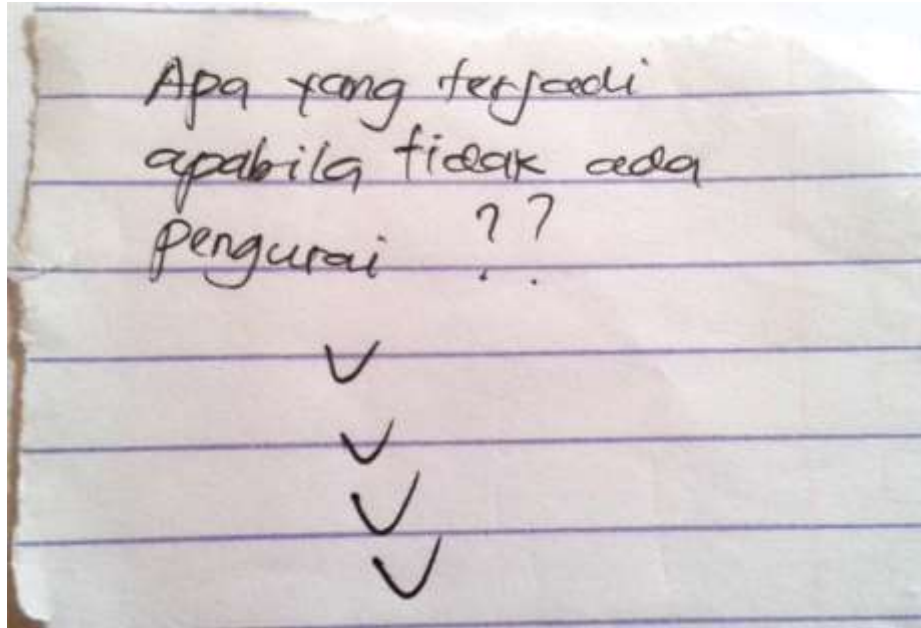 Apa yang terjadi
apabila tidak ada
pengurai ??